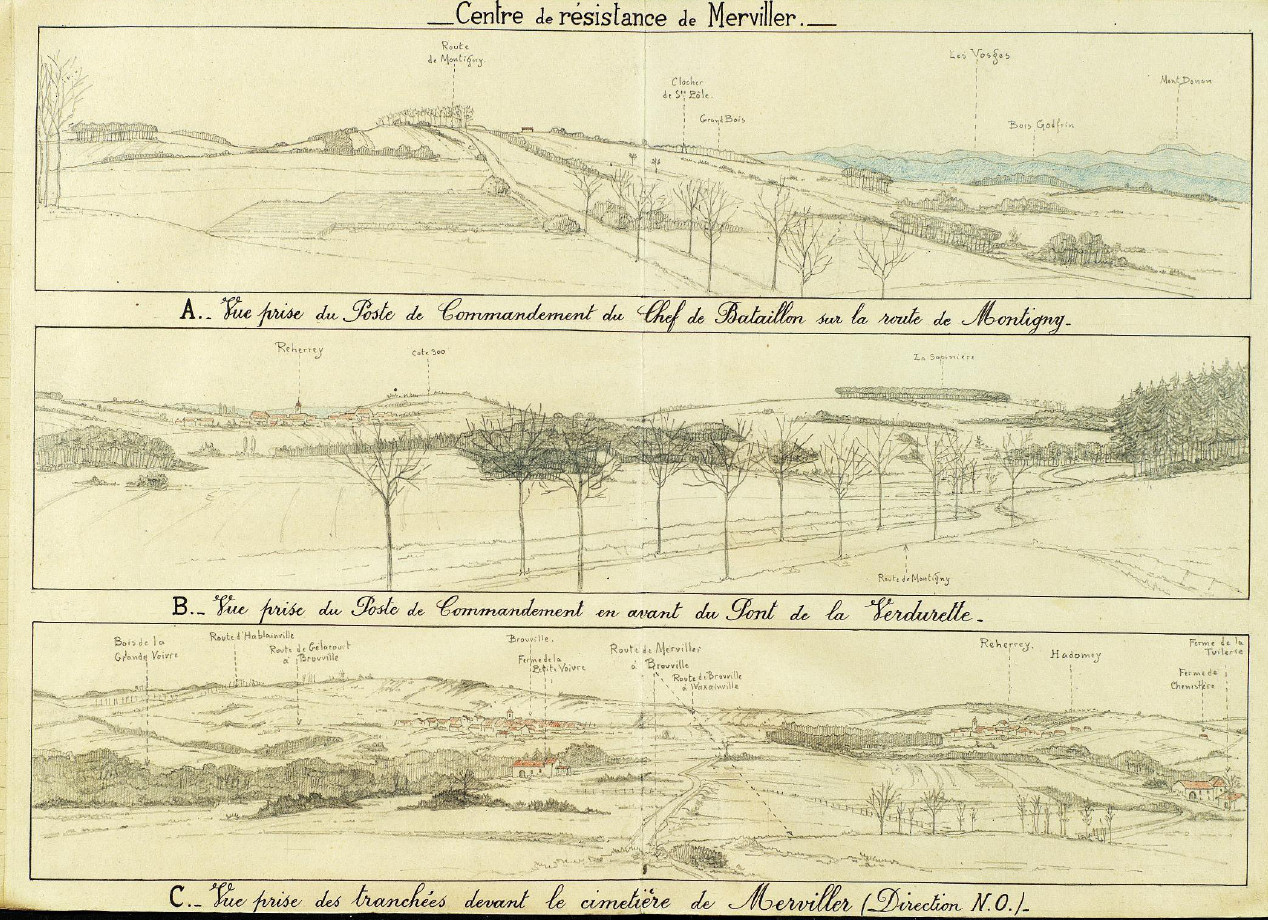 Centre de résistance de Merviller.
Route
de Montigny
Clocher
de Ste Pôle.
Grand Bois
Les Vosges
Bois Godfrin
Mont Donon
A.- Vue prise du Poste de Commandement du Chef de Bataillon sur la route de Montigny.
Reherrey
Cote 300
La Sapinière
Route de Montigny
B.- Vue prise du Poste de Commandement en avant du Pont de la Verdurette.
Bois de la
Grande Voivre
Route d'Hablainville
Route de Gélacourt
à Brouville
Brouville.
Ferme de la
Petite Voivre
Route de Merviller
à Brouville
Route de Brouville
à Vaxainville
Reherrey.
Hadomey
Ferme de la
Tuilerie
Ferme de
C.- Vue prise des tranchées devant le cimetière de Merviller (Direction N.O.)